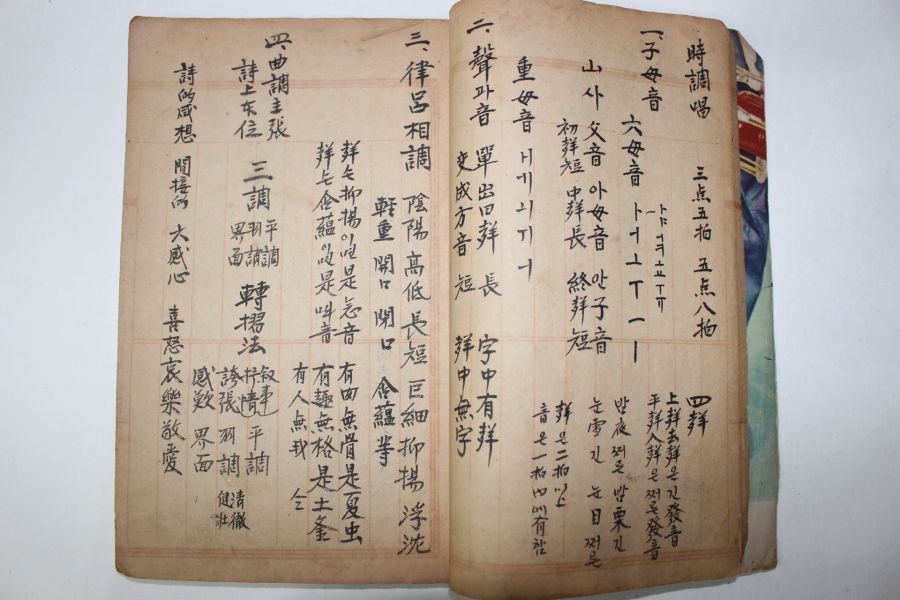 時調唱 三点五拍 五点八拍
一. 子母音 六母音 ㅏㅓㅗㅜㅡㅣ
ㅑㅕㅛㅠ
山 사 父音 아 母音 안 子音
初聲短 中聲長 終聲短
四聲
上聲去聲은긴發音
平聲入聲은쩌른發音
밤夜쩌른 밤栗긴
눈雪긴 눈目쩌른
聲은二拍以上
音은一拍內에有함
重母音 ㅐㅔㅚㅟㅢ
二. 聲과音 單出曰聲 長 字中有聲
變成方音 短 聲中無字
三. 律呂相調 陰陽 高低 長短 巨細 抑揚 浮沈
輕重 開口 閉口 含蘊 等
聲은抑揚이 是急音 有曲無骨是夏虫
聲은含蘊이 是叫音 有趣無格是土釜
有人無我
四. 曲調主張
詩上本位 三調 平調
羽調
界面
轉摺法 叙事
抒情 平調
誇張 羽調 淸徹
健壯
感歎 界面
詩的感想 間接的 大感心 喜怒哀樂敬愛